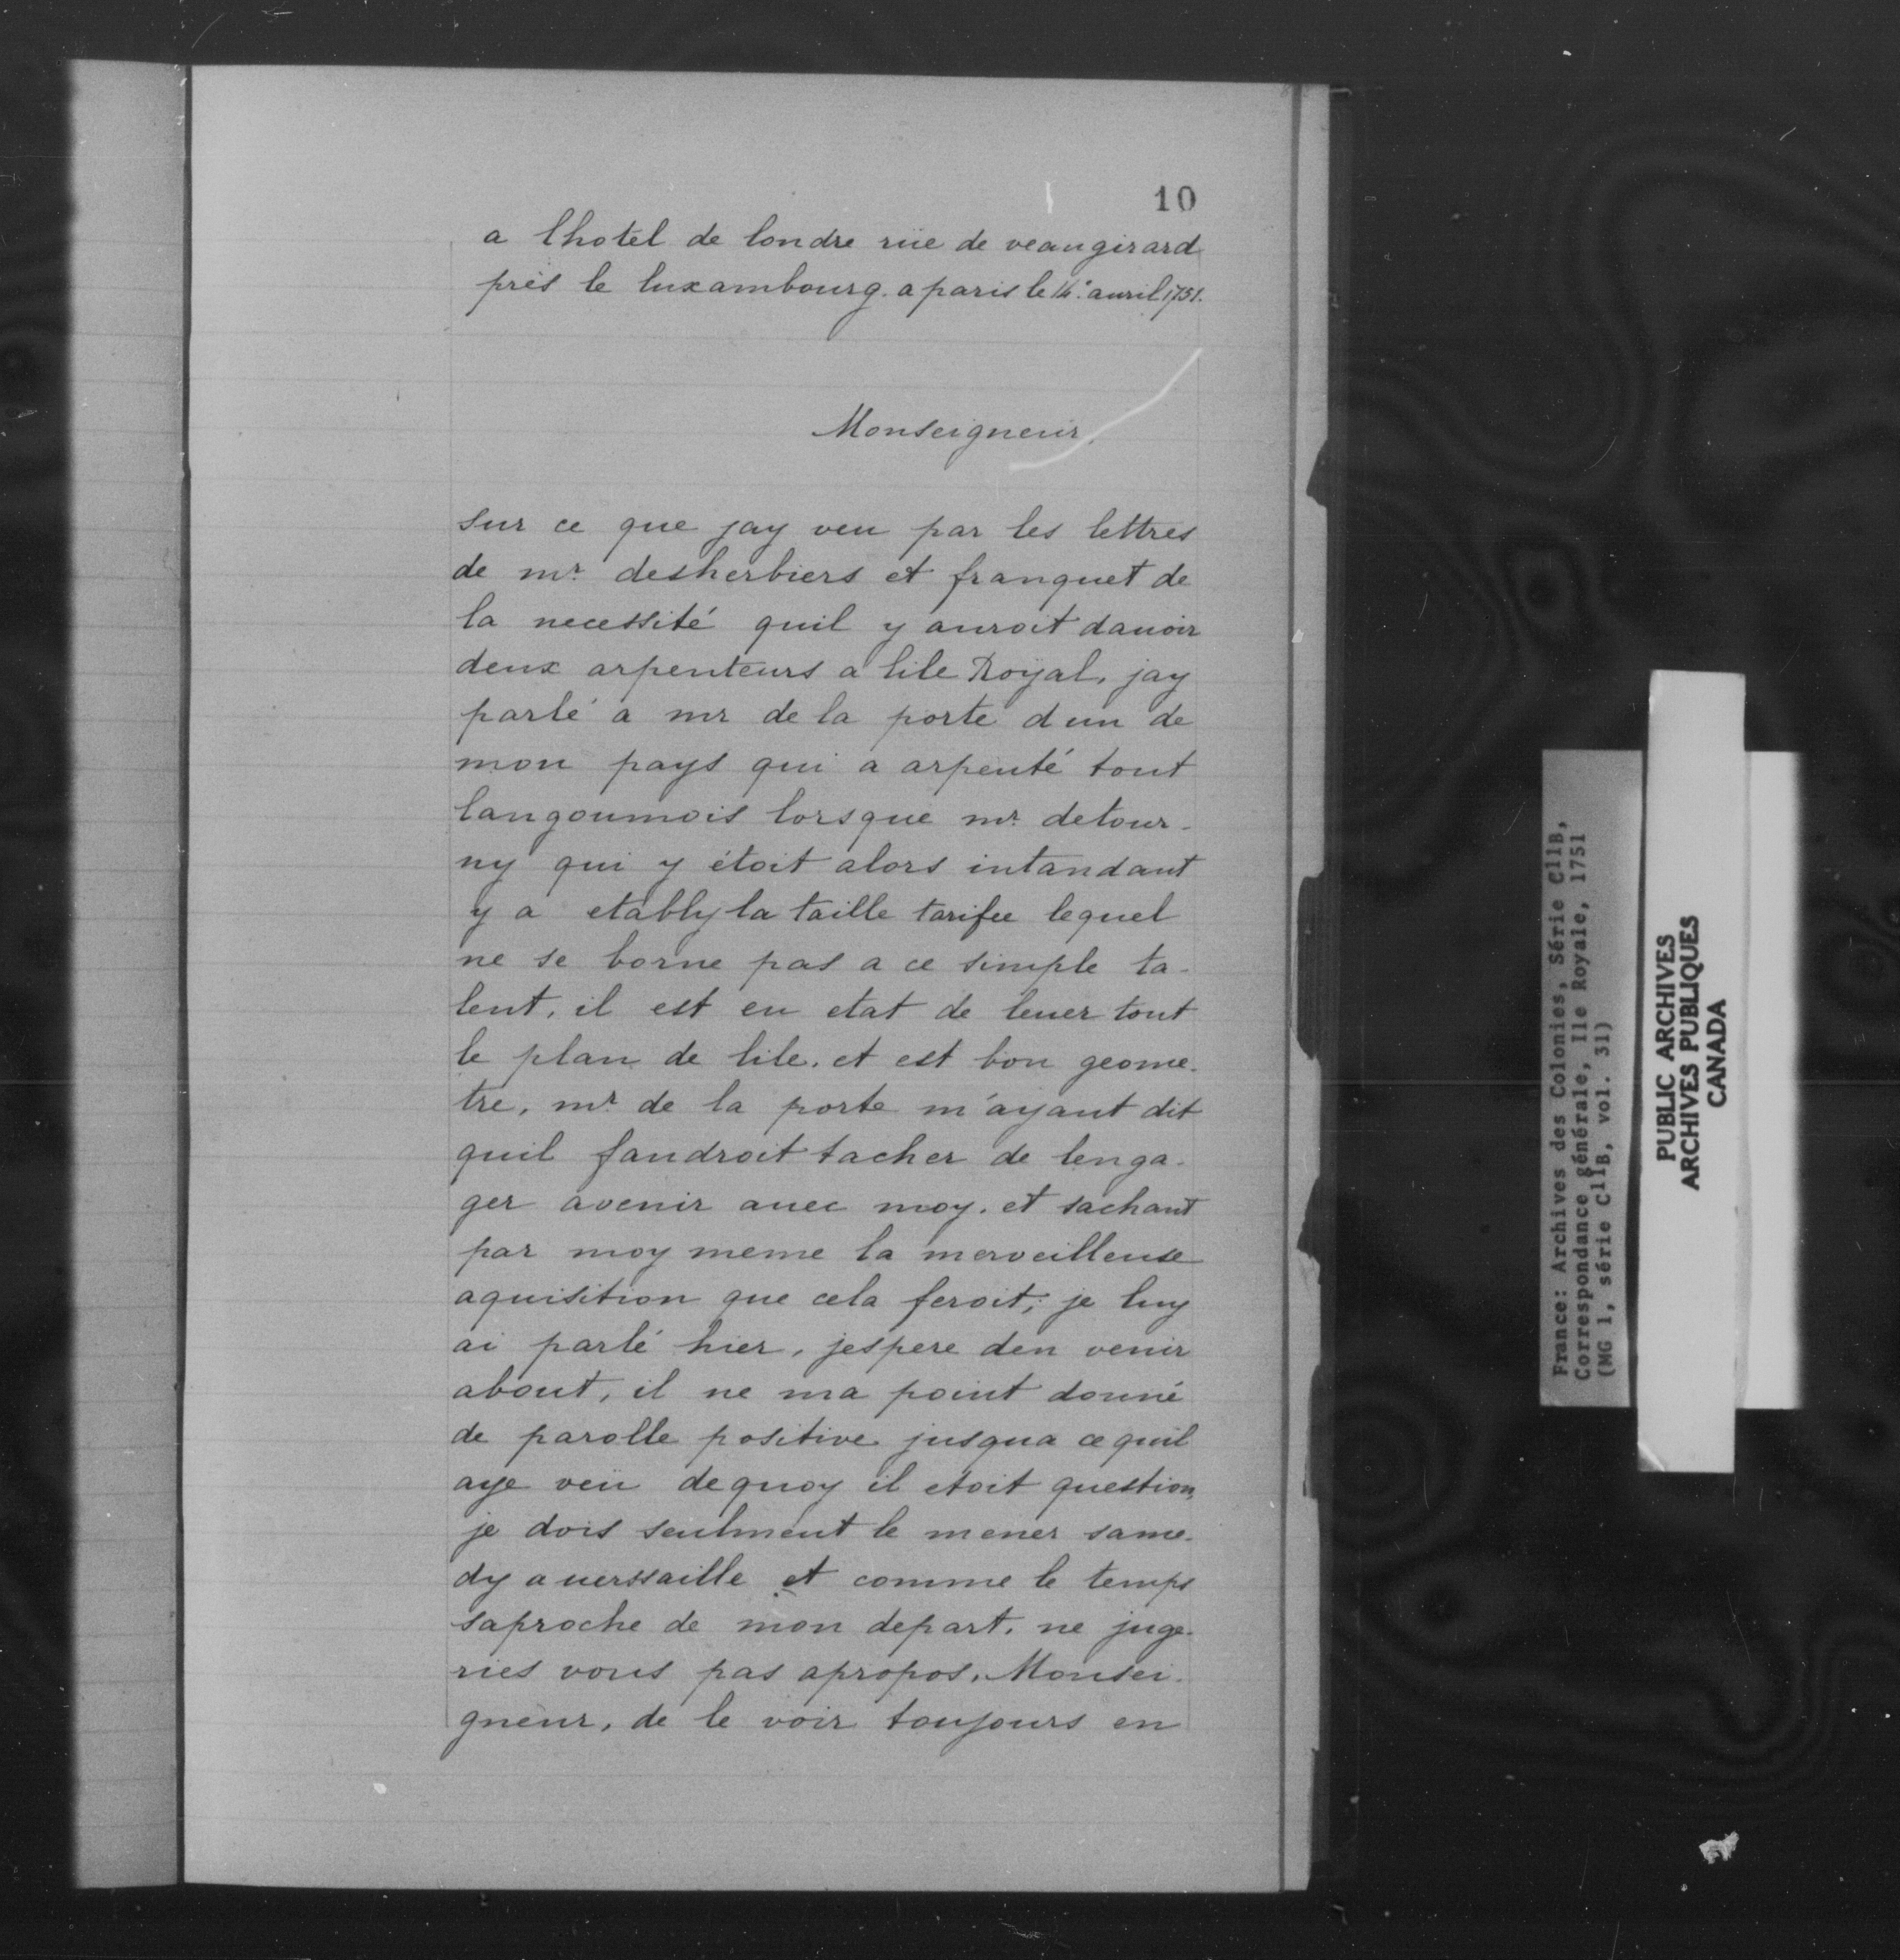 10
a lhotel de londre rüe de veaugirard
près le luxambourg. a paris le 14.e auril 1751.
Monseigneur,
sur ce que jay veu par les lettres
de mr. desherbiers et franquet de
la necessité quil y auroit dauoir
deux arpenteurs a lile Royal, jay
parlé a mr de la porte d un de
mon pays qui a arpenté tout
langoumois lorsque mr. detour-
ny qui y étoit alors intandant
y a etably la taille tarifee lequel
ne se borne pas a ce simple ta-
lent, il est en etat de leuer tout
le plan de lile. et est bon geome-
tre, mr. de la porte m'ayant dit
quil faudroit tacher de lenga-
ger avenir auec moy. et sachant
par moy meme la merveilleuse
aquisition que cela feroit; je luy
ai parlé hier, jespere den venir
about, il ne ma point donné
de parolle positive jusqua ce quil
aye veü de quoy il etoit question,
je dois seulment le mener same-
dy a uerssaille et comme le temps
saproche de mon depart. ne juge-
ries vous pas apropos, Monsei-
gneur, de le voir toujours en
France: Archives des Colonies, Série C11B,
Correspondance générale, Ile Royale, 1751
(MG 1, série C11B, vol. 31)
PUBLIC ARCHIVES
ARCHIVES PUBLIQUES
CANADA